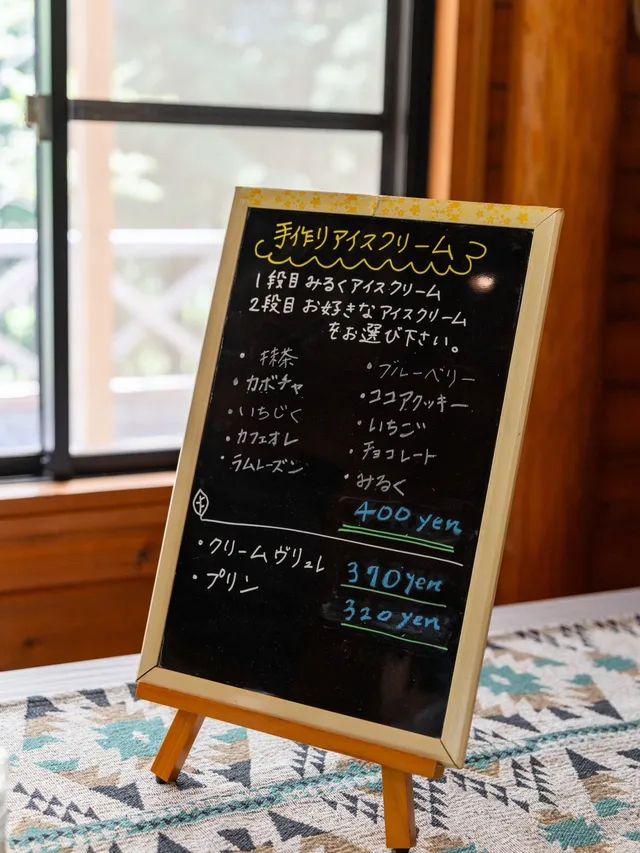 手作りアイスクリーム
1段目 みるくアイスクリーム
2段目 お好きなアイスクリーム
をお選び下さい。
・抹茶
・カボチャ
・いちじく
・カフェオレ
・ラムレーズン
・ブルーベリー
・ココアクッキー
・いちご
・チョコレート
・みるく
400 yen
・クリームヴリュレ 390yen
・プリン 320yen